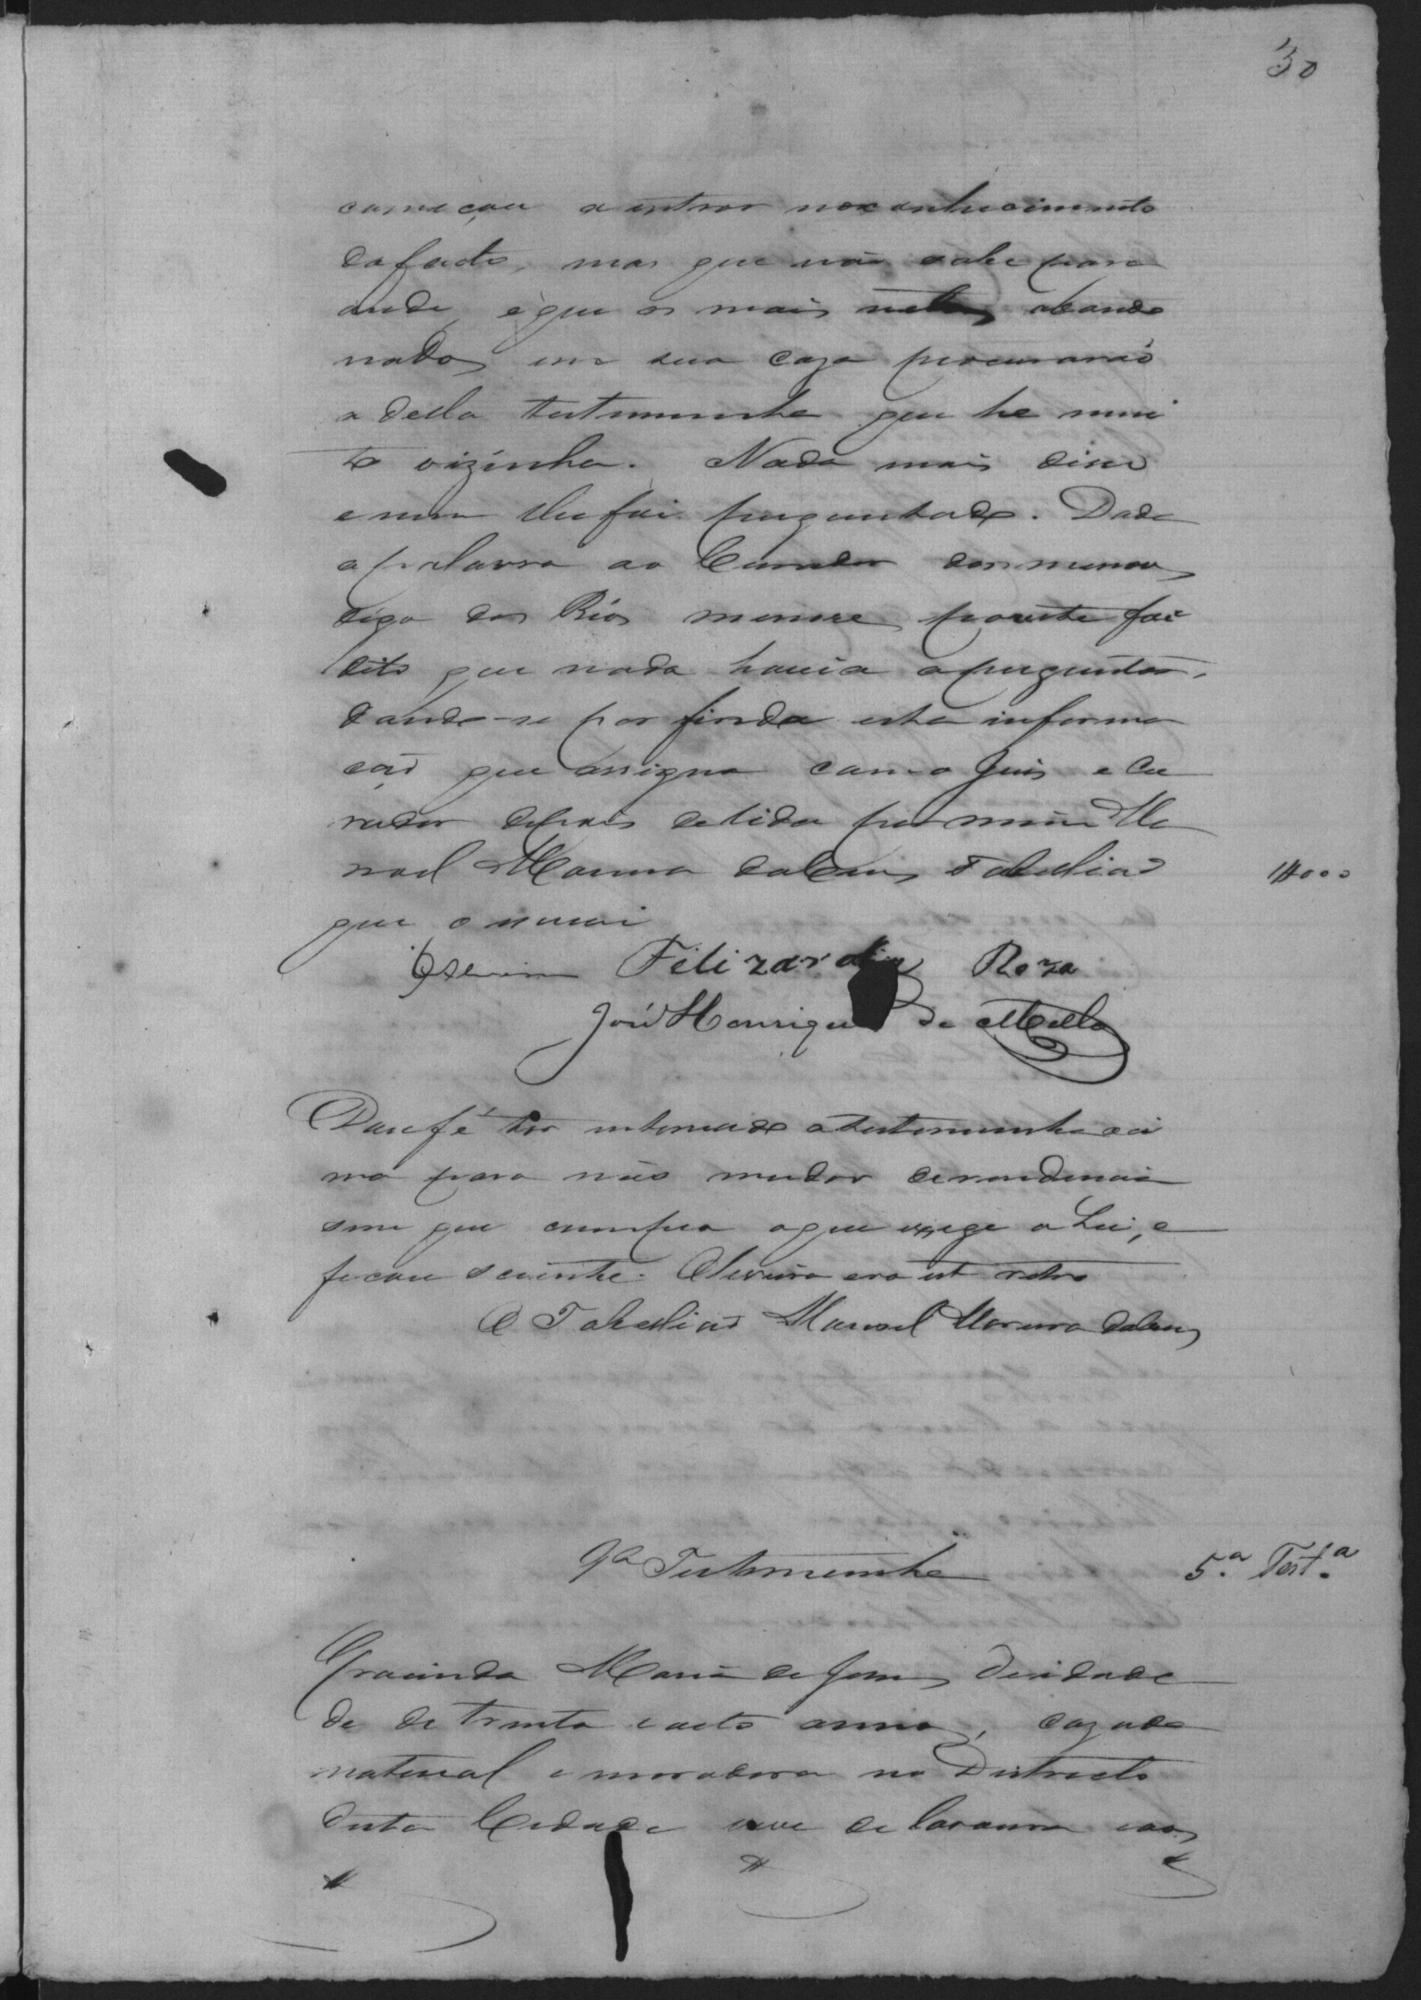 30
começou a entrar no conhecimento
do facto, mas que não sabe para
onde, e que os mais netos abando
nados em sua caza procurarão
a della testemunha que he mui
to vizinha. Nada mais disse
e nem lhe foi perguntado. Dada
a palavra ao Curador dos menores
digo dos Réos menores por este foi
dito que nada havia a perguntar,
dando-se por finda esta informa
ção que assigna com o Juis e Cu
rador depois de lida por mim Ma
noel Moreira da Tabellião
que o escrevi
1#000
Felizardina Roza
José Henriques de Mello
Dou fé ter intimado a testemunha aci
ma para não mudar de residencia
sem que cumpra o que exige a Lei, e
ficou sciente. Oliveira era ut retro
O Tabellião Manoel Moreira da
9ª Testemunha
5.ª Test.ª
Gracinda Maria de Jesus de idade
de de trinta e oito annos, cazada
natural e moradora no Districto
desta Cidade vive de lavoura aos